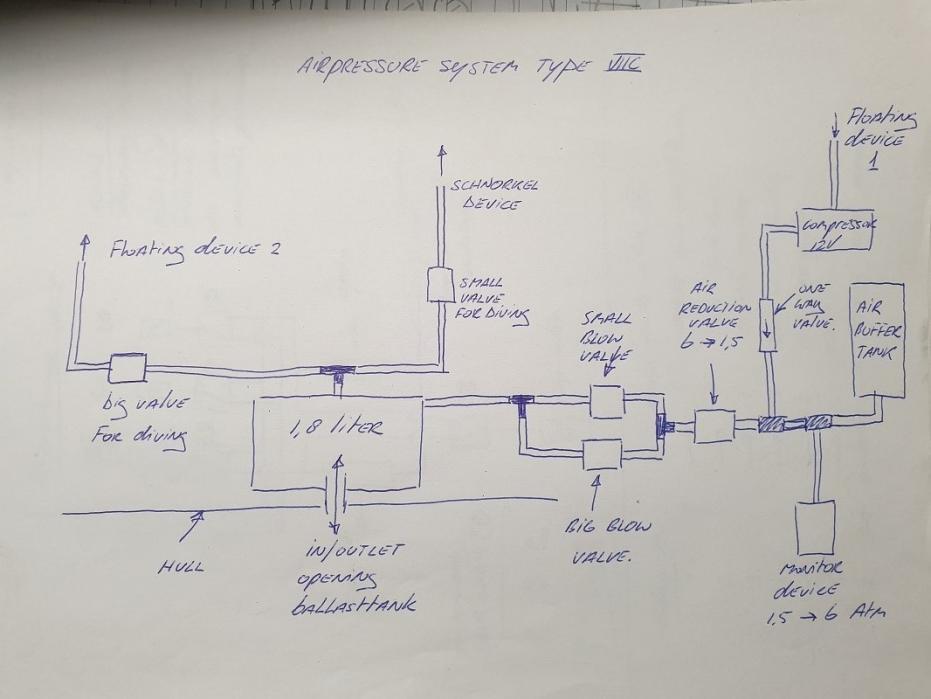 AIRPRESSURE SYSTEM TYPE VIIC
Floating
device
1
SCHNORKEL
DEVICE
Floating device 2
COMPRESSOR
12V
SMALL
VALVE
FOR DIVING
AIR
REDUCTION
VALVE
6 → 1,5
ONE
WAY
VALVE.
AIR
BUFFER
TANK
SMALL
BLOW
VALVE
big VALVE
FOR diving
1,8 liter
BIG BLOW
VALVE.
HULL
IN/OUTLET
OPENING
BALLASTTANK
MONITOR
DEVICE
1,5 → 6 Atm